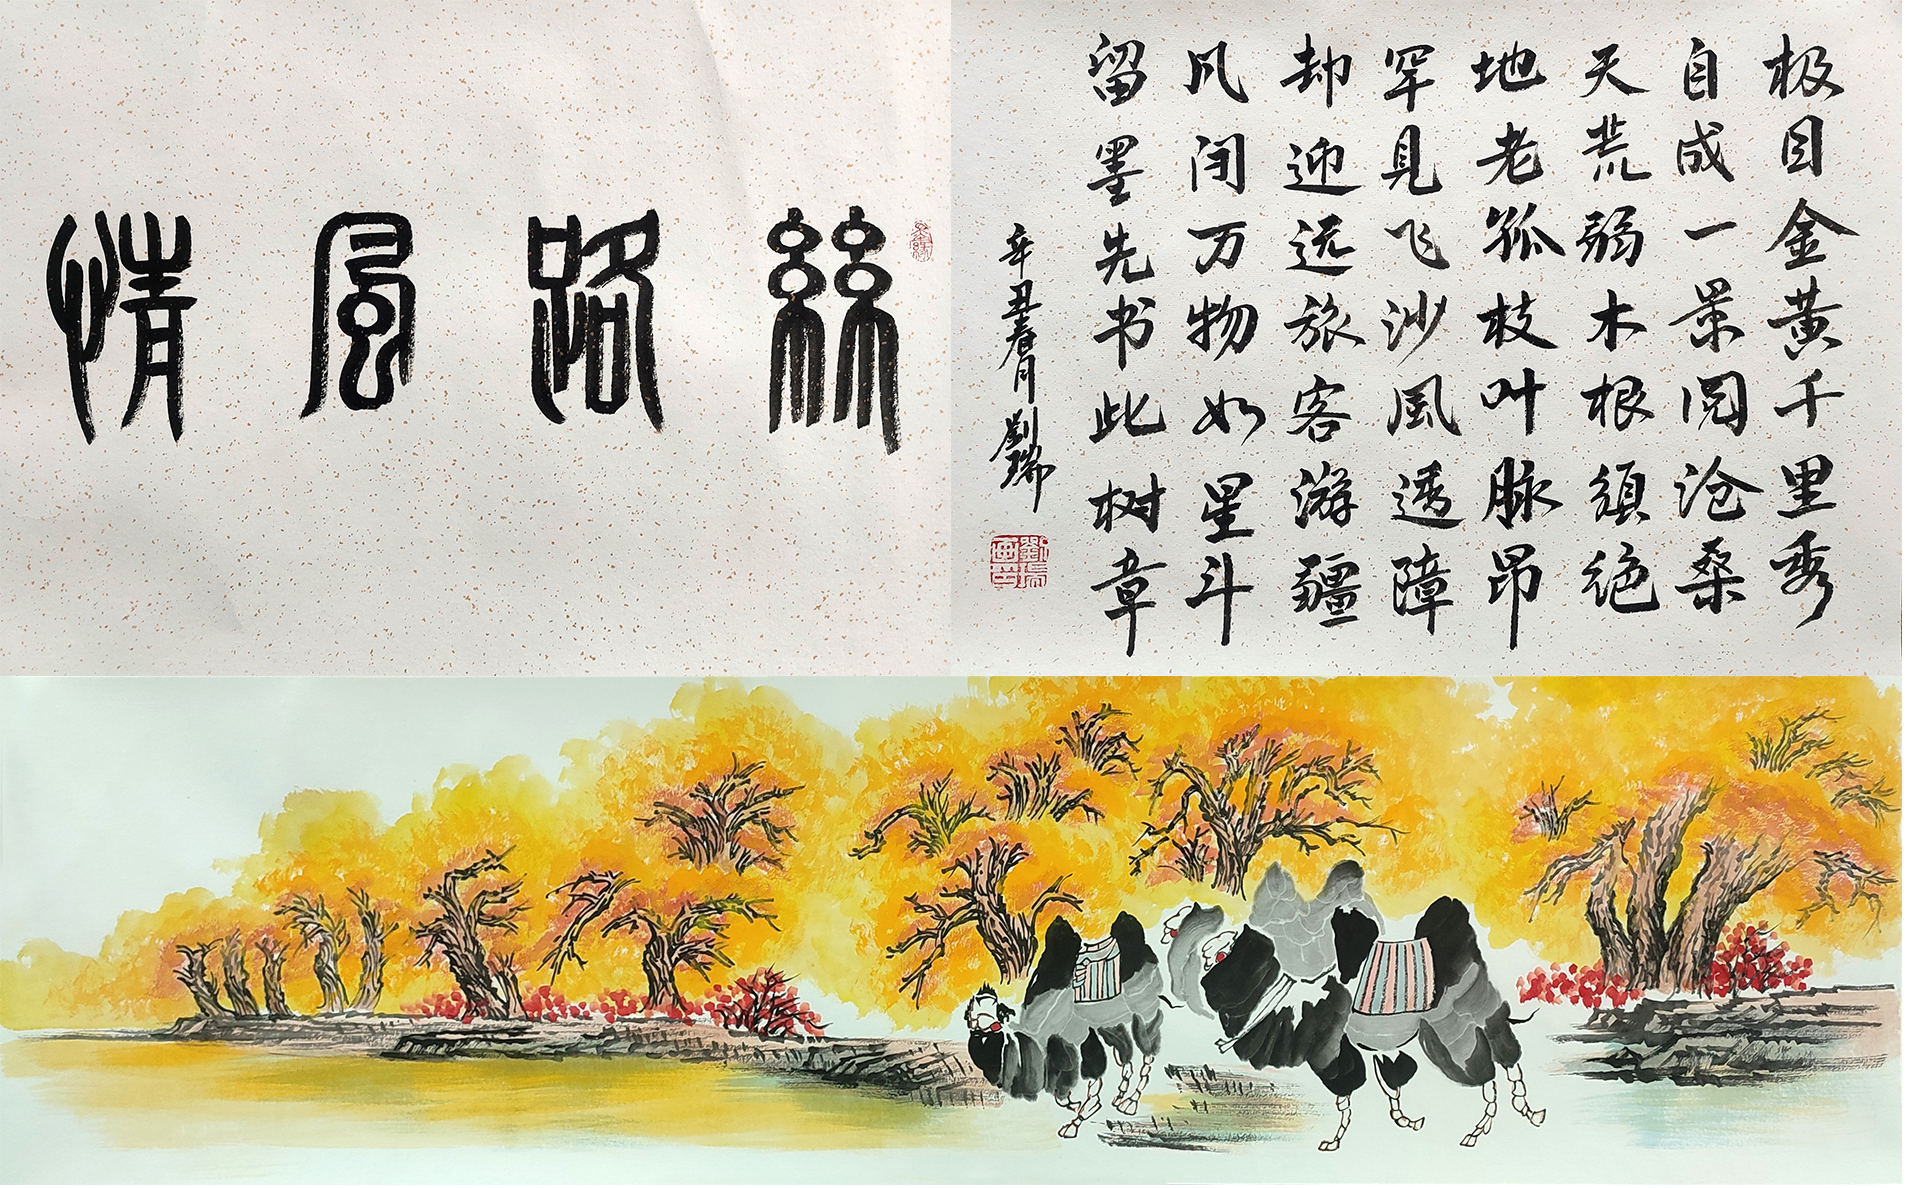 絲路風情
极目金黄千里秀
自成一景阅沧桑
天荒弱木根須绝
地老孤枝叶脉昂
罕见飞沙風透障
却迎远旅客游疆
凡间万物如星斗
留墨先书此树章
辛丑春月劉瑞
劉瑞画印